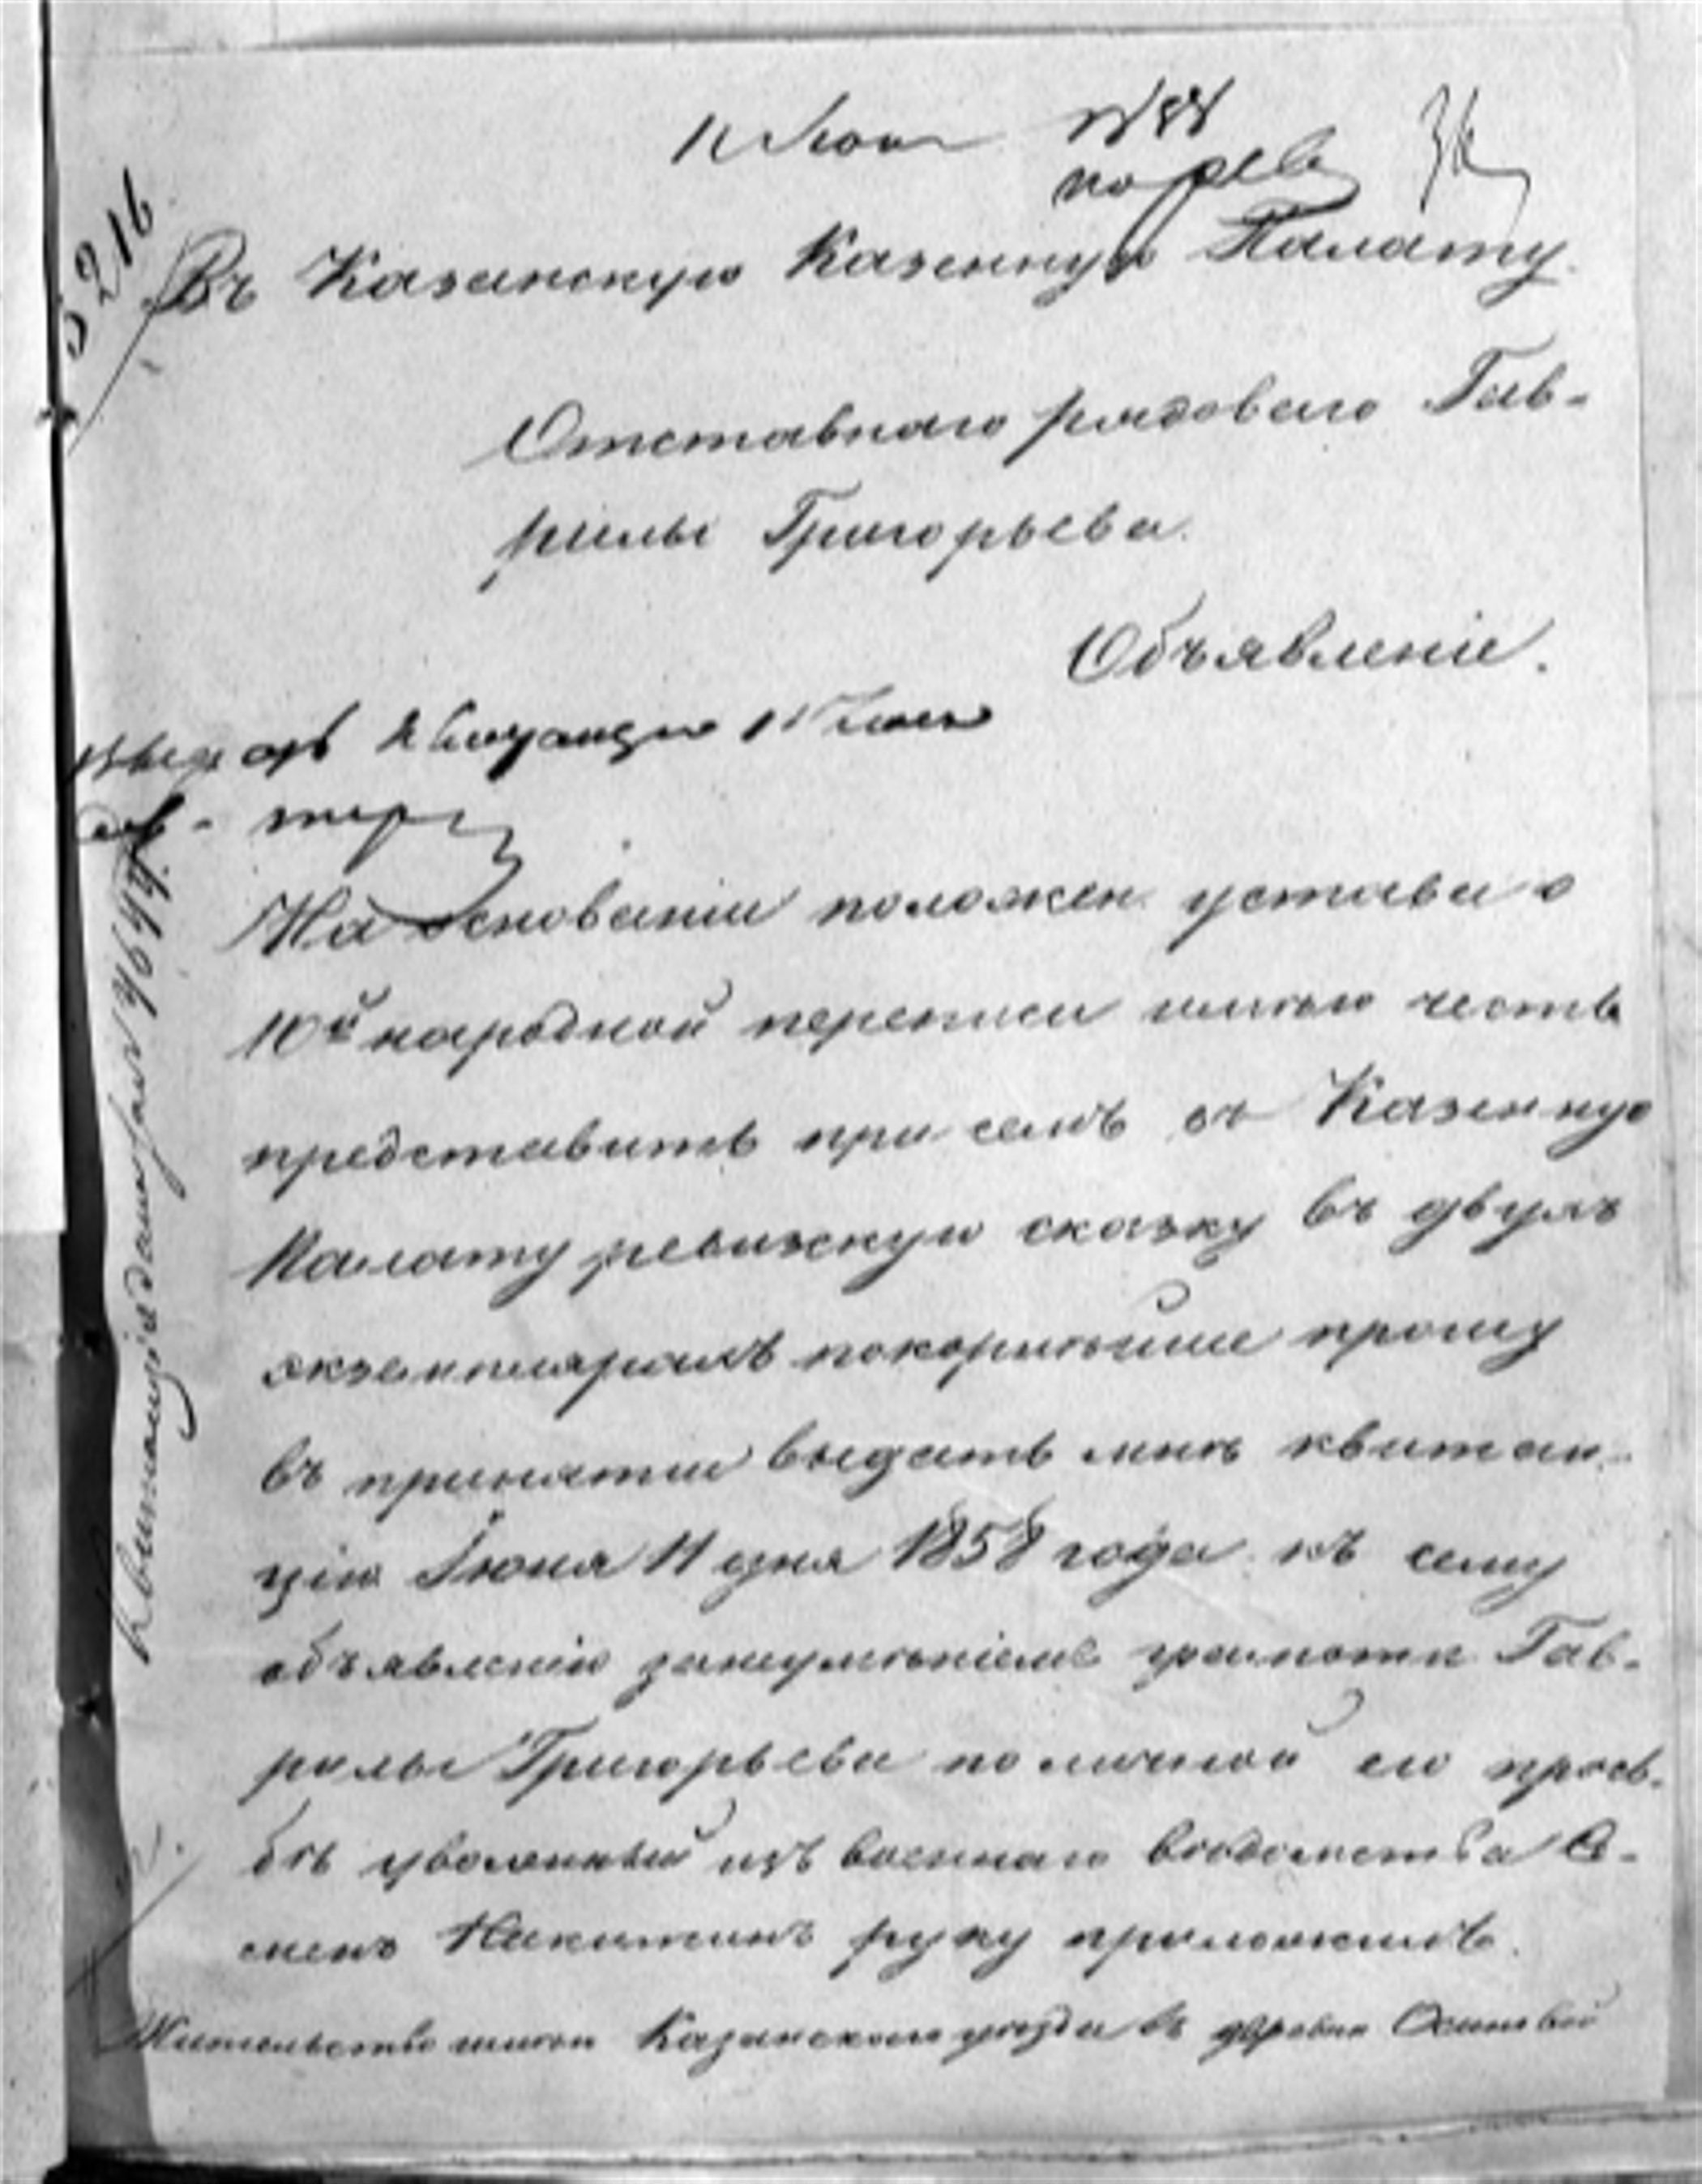 11 Июня № 88
по рев
5216
Въ Казанскую Казенную Палату.
Отставнаго рядоваго Гав-
рилы Григорьева.
Объявленіе.
На основаніи положен. устава о
10й народной переписи имѣю честь
представить при семъ въ Казенную
Палату ревизскую сказку въ двухъ
экземплярахъ покорнѣйше прошу
въ принятіи выдать мнѣ квитан-
цію Іюня 11 дня 1858 года къ сему
объявленію занеумѣніемъ грамоты Гав-
рилы Григорьева по личной его прозь-
бѣ уволенный изъ военнаго вѣдомства С-
менъ Никитинъ руку приложилъ.
Жительство имѣю Казанскаго уѣзда въ деревнѣ Осиновой
Квитанція дана за №